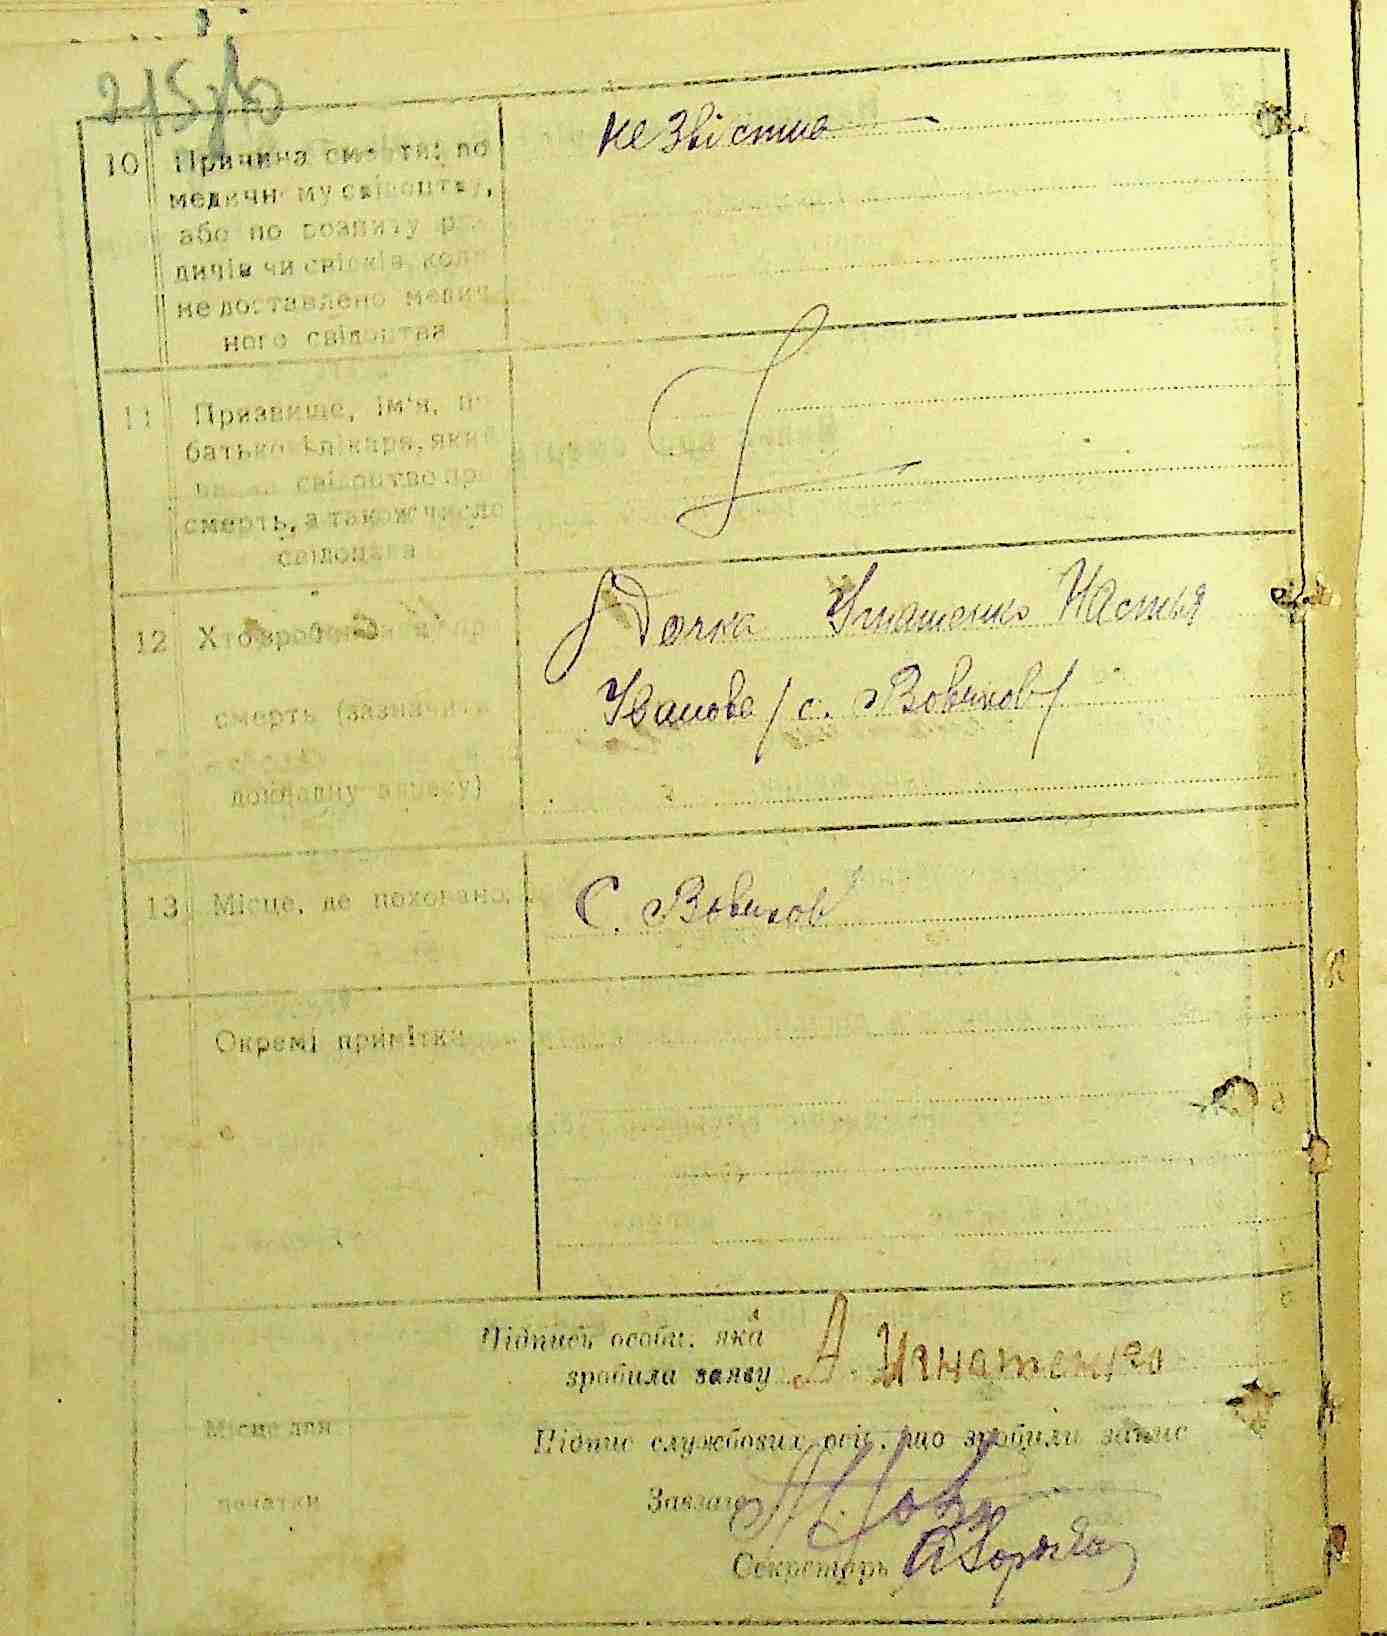 10 Причина смерти: по
медичному свідоцтву,
або по розпиту ро-
дичів чи свідків, коли
не доставлено медич-
ного свідоцтва
не звістна
11 Призвище, ім'я, по
батькові лікаря, який
свідоцтво про
смерть, а також число
свідоцтва
12 Хто зробив
смерть (зазначити
докладну адресу)
Дочка Игнатенко Настья
Іванова / с. Вовчков /
13 Місце, де поховано.
С. Вовчков
Окремі примітки
Підпись особи, яка
зробила заяву А. Игнатенко
Місце для
печатки
Підпис службових осіб, що зробили запис
Завзагс
Секретарь